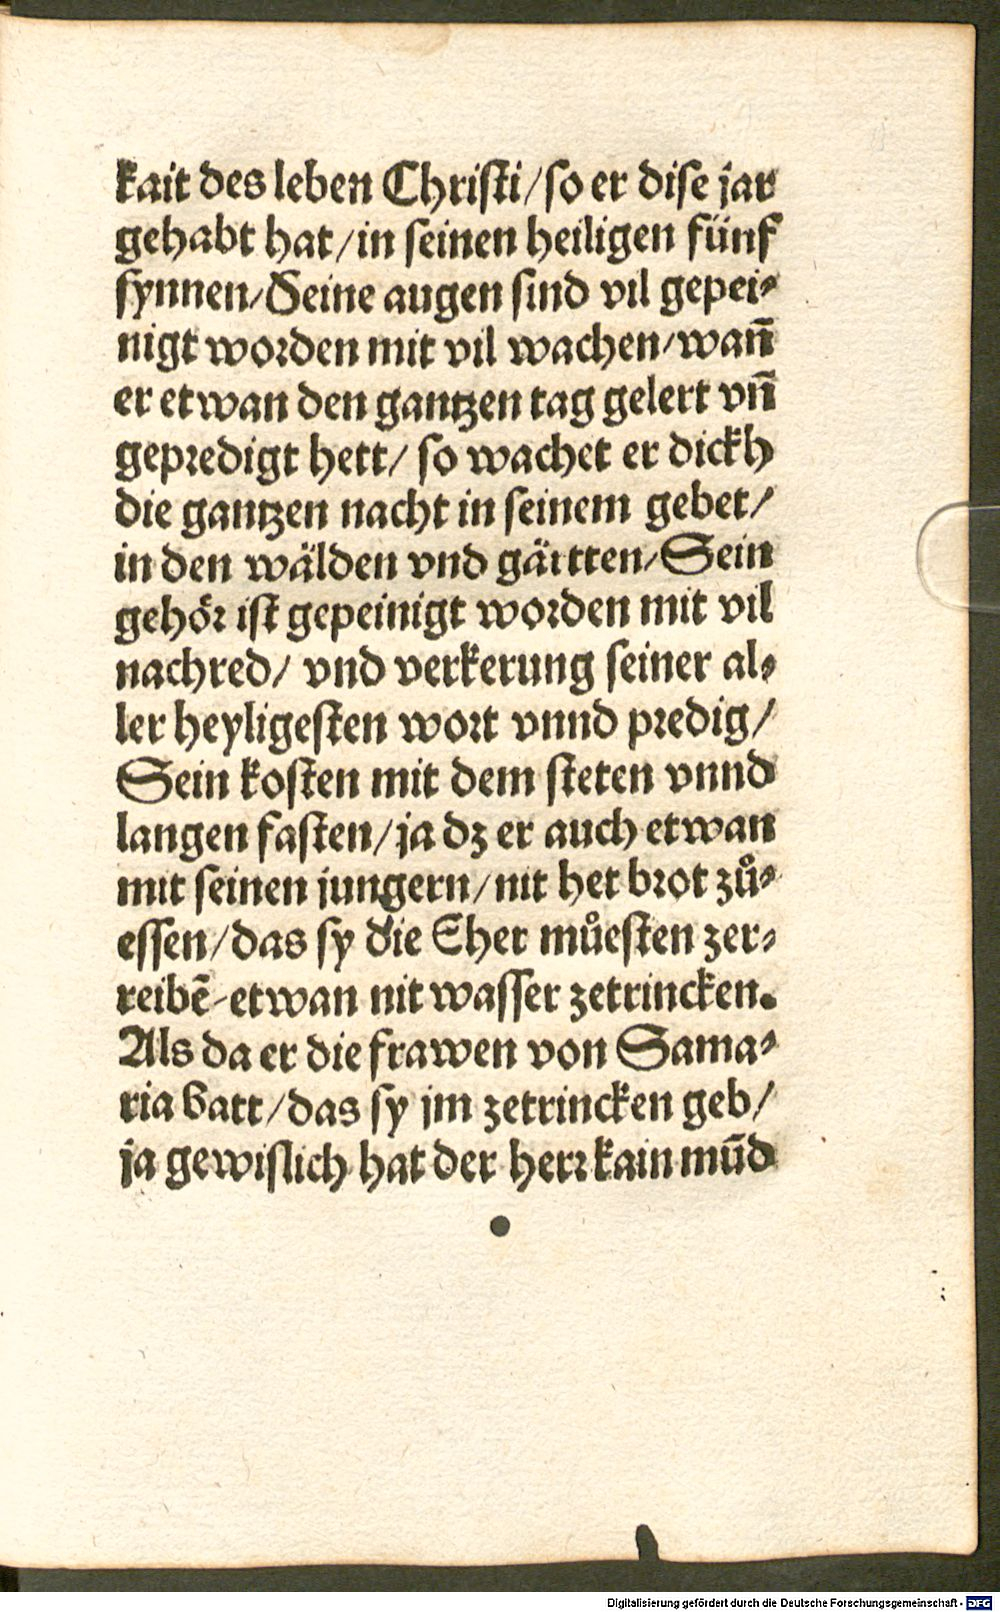 kait des leben Christi/so er dise jar
gehabt hat/in seinen heiligen fünf
synnen/Seine augen sind vil gepei⸗
nigt worden mit vil wachen/wañ
er etwan den gantzen tag gelert vñ
gepredigt hett/ so wachet er dickh
die gantzen nacht in seinem gebet/
in den wälden vnd gärtten/Sein
gehör ist gepeinigt worden mit vil
nachred/ vnd verkerung seiner al⸗
ler heyligesten wort vnnd predig/
Sein kosten mit dem steten vnnd
langen fasten/ja dz er auch etwan
mit seinen jungern/nit het brot zů⸗
essen/das sy die Eher můesten zer⸗
reibē/etwan nit wasser zetrincken.
Als da er die frawen von Sama⸗
ria batt/das sy jm zetrincken geb/
ja gewislich hat der herr kain mūd
Digitalisierung gefördert durch die Deutsche Forschungsgemeinschaft - DFG